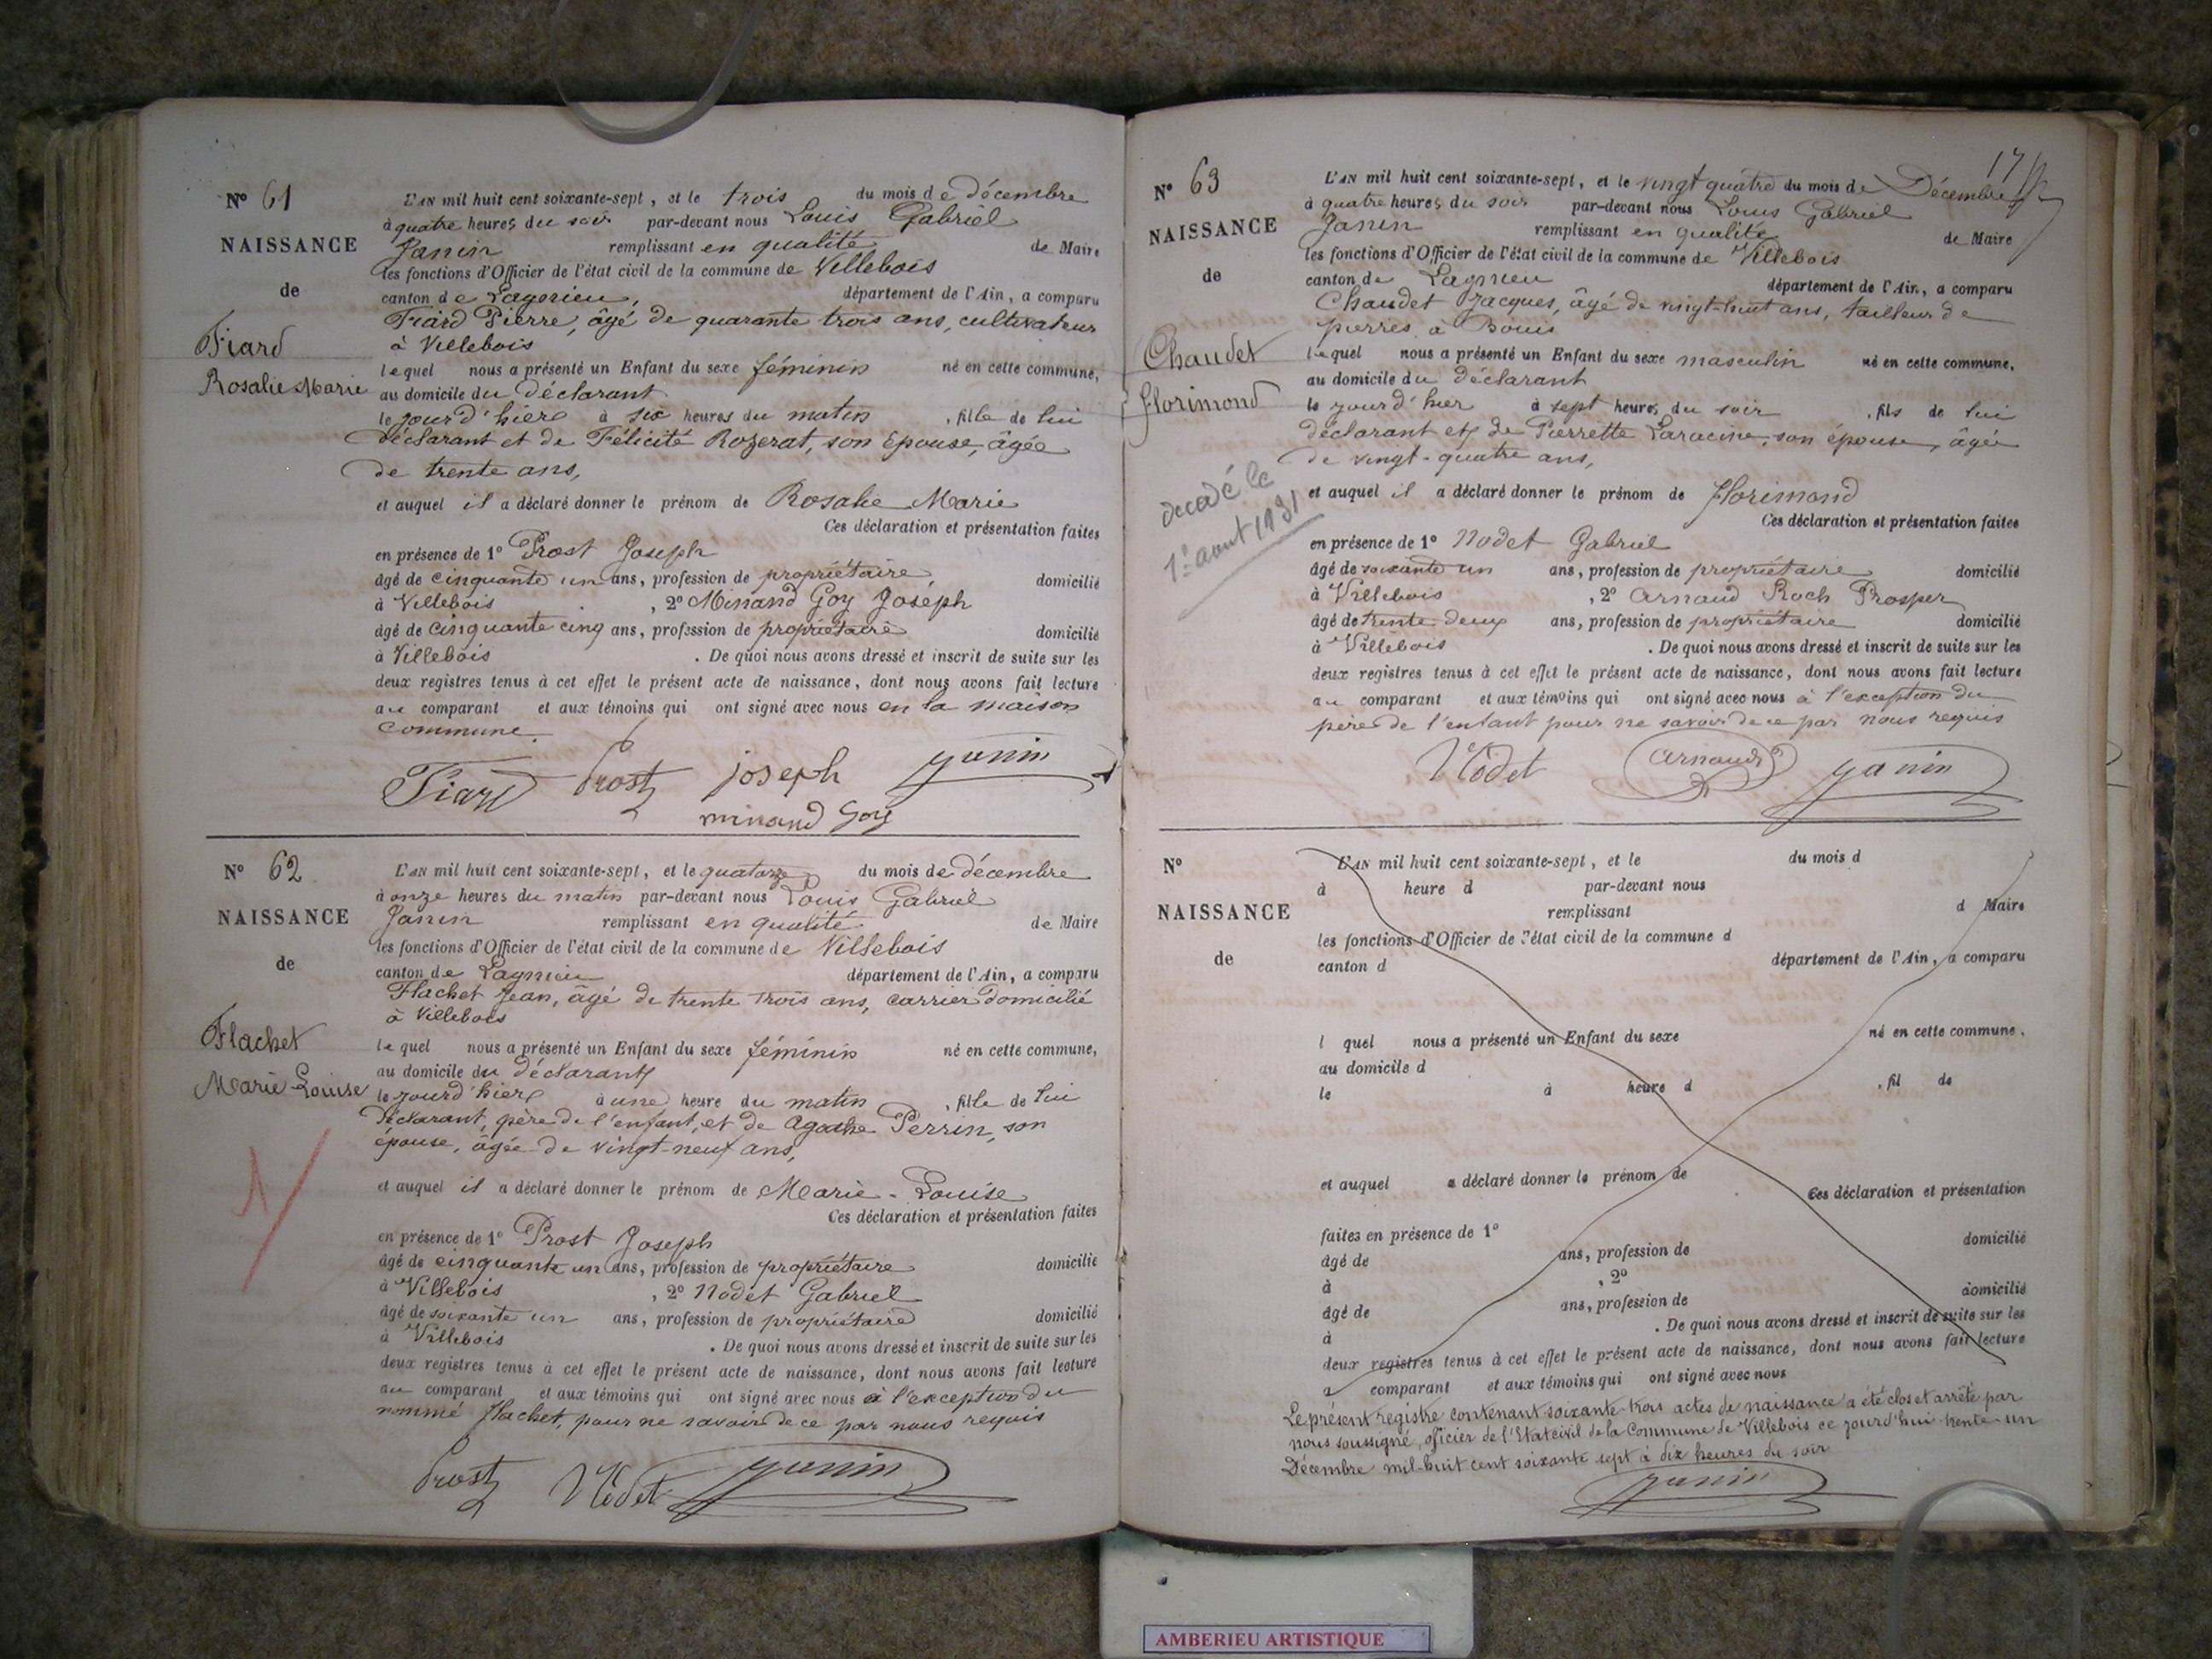 N° 61
NAISSANCE
de
Fiard
Rosalie Marie
L'AN mil huit cent soixante-sept, et le trois du mois de décembre
à quatre heures du soir par-devant nous Louis Gabriel
Janin remplissant en qualité de Maire
les fonctions d'Officier de l'état civil de la commune de Villebois
canton de Lagnieu, département de l'Ain, a comparu
Fiard Pierre, âgé de quarante trois ans, cultivateur
à Villebois
lequel nous a présenté un Enfant du sexe féminin né en cette commune,
au domicile du déclarant
le jourd'hier à six heures du matin, fille de lui
déclarant et de Félicité Rozerat, son épouse, âgée
de trente ans,
et auquel il a déclaré donner le prénom de Rosalie Marie
Ces déclaration et présentation faites
en présence de 1° Prost Joseph
âgé de cinquante un ans, profession de propriétaire, domicilié
à Villebois, 2° Minand Goy Joseph
âgé de cinquante cinq ans, profession de propriétaire domicilié
à Villebois. De quoi nous avons dressé et inscrit de suite sur les
deux registres tenus à cet effet le présent acte de naissance, dont nous avons fait lecture
au comparant et aux témoins qui ont signé avec nous en la maison
commune.
Fiard Prost joseph Janin
minand Goy
N° 62
NAISSANCE
de
Flachet
Marie-Louise
L'AN mil huit cent soixante-sept, et le quatorze du mois de décembre
à onze heures du matin par-devant nous Louis Gabriel
Janin remplissant en qualité de Maire
les fonctions d'Officier de l'état civil de la commune de Villebois
canton de Lagnieu département de l'Ain, a comparu
Flachet Jean, âgé de trente trois ans, carrier domicilié
à Villebois
lequel nous a présenté un Enfant du sexe féminin né en cette commune,
au domicile du déclarant
le jourd'hier à une heure du matin, fille de lui
déclarant, père de l'enfant, et de Agathe Perrin, son
épouse, âgée de vingt-neuf ans,
et auquel il a déclaré donner le prénom de Marie-Louise
Ces déclaration et présentation faites
en présence de 1° Prost Joseph
âgé de cinquante un ans, profession de propriétaire domicilié
à Villebois, 2° Nodet Gabriel
âgé de soixante un ans, profession de propriétaire domicilié
à Villebois. De quoi nous avons dressé et inscrit de suite sur les
deux registres tenus à cet effet le présent acte de naissance, dont nous avons fait lecture
au comparant et aux témoins qui ont signé avec nous à l'exception du
nommé Flachet, pour ne savoir de ce par nous requis
Prost Nodet Janin
17
N° 63
NAISSANCE
de
Chaudet
Florimond
décédé le
1er aout 1931
L'AN mil huit cent soixante-sept, et le vingt quatre du mois de Décembre
à quatre heures du soir par-devant nous Louis Gabriel
Janin remplissant en qualité de Maire
les fonctions d'Officier de l'état civil de la commune de Villebois
canton de Lagnieu département de l'Ain, a comparu
Chaudet Jacques, âgé de vingt-huit ans, tailleur de
pierres à Bouis
lequel nous a présenté un Enfant du sexe masculin né en cette commune,
au domicile du déclarant
le jourd'hier à sept heures du soir, fils de lui
déclarant et de Pierrette Laracine, son épouse, âgée
de vingt-quatre ans,
et auquel il a déclaré donner le prénom de Florimond
Ces déclaration et présentation faites
en présence de 1° Nodet Gabriel
âgé de soixante un ans, profession de propriétaire domicilié
à Villebois, 2° Arnaud Roch Prosper
âgé de trente deux ans, profession de propriétaire domicilié
à Villebois. De quoi nous avons dressé et inscrit de suite sur les
deux registres tenus à cet effet le présent acte de naissance, dont nous avons fait lecture
au comparant et aux témoins qui ont signé avec nous à l'exception du
père de l'enfant pour ne savoir de ce par nous requis
Nodet Arnaud Janin
N°
NAISSANCE
de
L'AN mil huit cent soixante-sept, et le du mois d
à heure d par-devant nous
remplissant d Maire
les fonctions d'Officier de l'état civil de la commune d
canton d département de l'Ain, a comparu
l quel nous a présenté un Enfant du sexe né en cette commune.
au domicile d
le à heure d, fil de
et auquel a déclaré donner le prénom de
Ces déclaration et présentation
faites en présence de 1° domicilié
âgé de ans, profession de
à, 2° domicilié
âgé de ans, profession de
à. De quoi nous avons dressé et inscrit de suite sur les
deux registres tenus à cet effet le présent acte de naissance, dont nous avons fait lecture
a comparant et aux témoins qui ont signé avec nous
Le présent registre contenant soixante trois actes de naissance a été clos et arrêté par
nous soussigné, officier de l'Etat civil de la Commune de Villebois ce jourd'hui trente-un
Décembre mil-huit cent soixante sept à dix heures du soir
Janin
AMBERIEU ARTISTIQUE